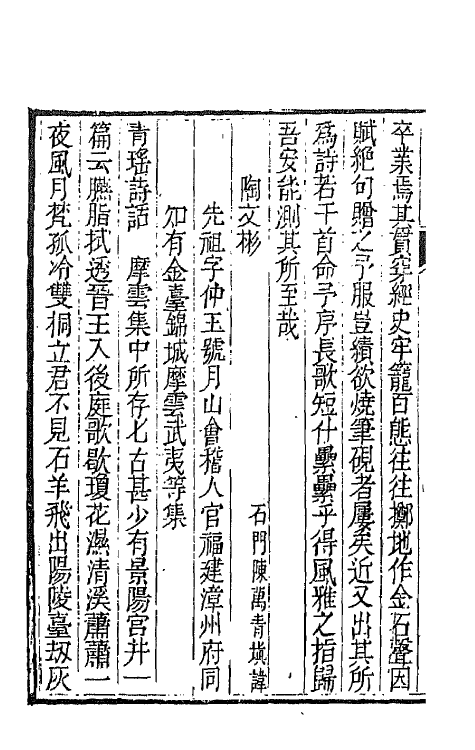 卒業焉其實穿經史牢籠百態往往擲地作金石聲因
賦絕句贈之予服豈續欲燒筆硯者屢矣近又出其所
爲詩若干首命予序長歌短什纍纍乎得風雅之指歸
吾安能測其所至哉
陶文彬　石門陳萬青塡諱
先祖字仲玉號月山會稽人官福建漳州府同
知有金臺錦城摩雲武夷等集
青瑶詩話　摩雲集中所存七古甚少有景陽宮井一
篇云臙脂拭透晉王入後庭歌歇瓊花濕清溪蕭蕭一
夜風月梵孤冷雙桐立君不見石羊飛出陽陵臺刼灰